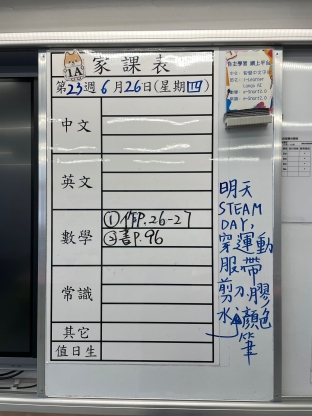 1A 家課表
第23週6月26日(星期四)
中文
英文
數學
①作P.26-27
②書P.96
常識
其它
值日生
自主學習 網上平台
明天
STEAM
DAY,
穿運動
服帶
剪刀,膠
水,顏色
筆